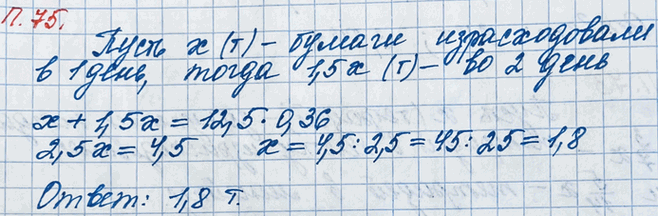 П. 75.
Пусть x (т) - бумаги израсходовали
в 1 день, тогда 1,5x (т) - во 2 день
x + 1,5x = 12,5 · 0,36
2,5x = 4,5 x = 4,5 : 2,5 = 45 : 25 = 1,8
Ответ: 1,8 т.